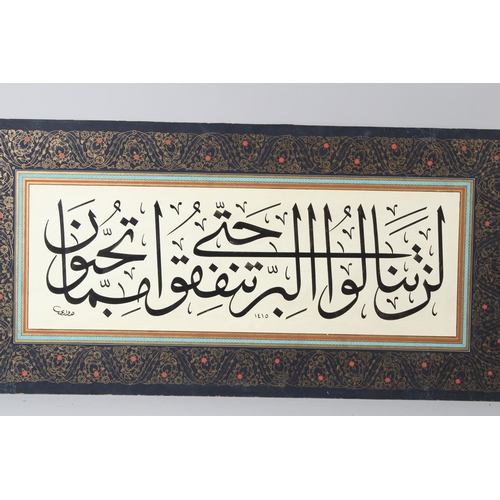 لن تنالوا البر حتى تنفقوا مما تحبون
١٤١٥